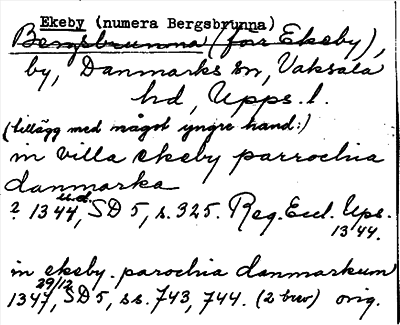 Ekeby (numera Bergsbrunna)
Bergsbrunna (förr Ekeby),
by, Danmarks sn, Vaksala
hd, Upps. l.
(tillägg med något yngre hand:)
in villa ekeby parrochia
danmarka
u.d.
? 1344, SD 5, s. 325. Reg. Eccl. Ups.
1344.
in ekeby. parochia danmarkum
29/12
1347, SD 5, ss. 743, 744. (2 brev) orig.